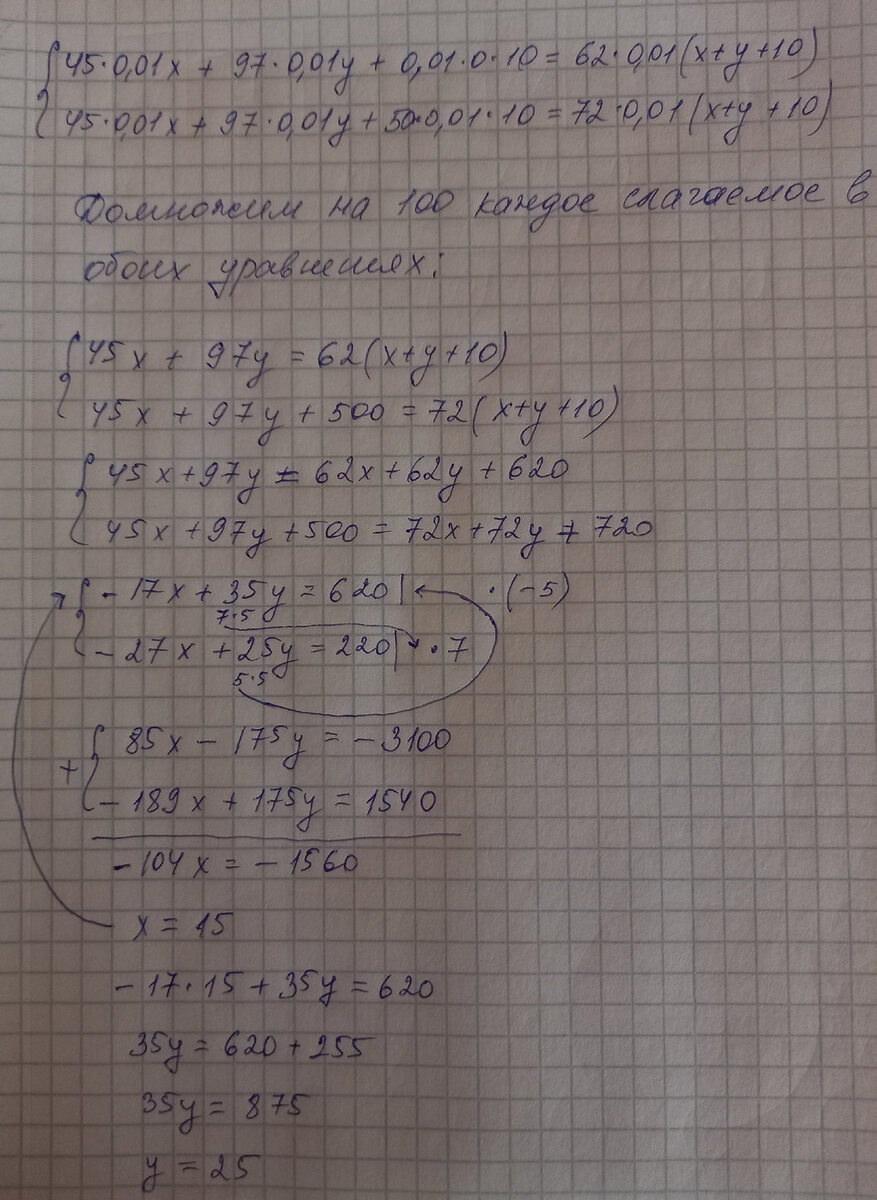 45·0,01x + 97·0,01y + 0,01·0·10 = 62·0,01(x+y+10)
45·0,01x + 97·0,01y + 50·0,01·10 = 72·0,01(x+y+10)
Домножим на 100 каждое слагаемое в
обоих уравнениях:
45x + 97y = 62(x+y+10)
45x + 97y + 500 = 72(x+y+10)
45x + 97y = 62x + 62y + 620
45x + 97y + 500 = 72x + 72y + 720
- 17x + 35y = 620 | ·(-5)
7·5
- 27x + 25y = 220 | ·7
5·5
+ 85x - 175y = -3100
- 189x + 175y = 1540
- 104x = - 1560
x = 15
- 17·15 + 35y = 620
35y = 620 + 255
35y = 875
y = 25